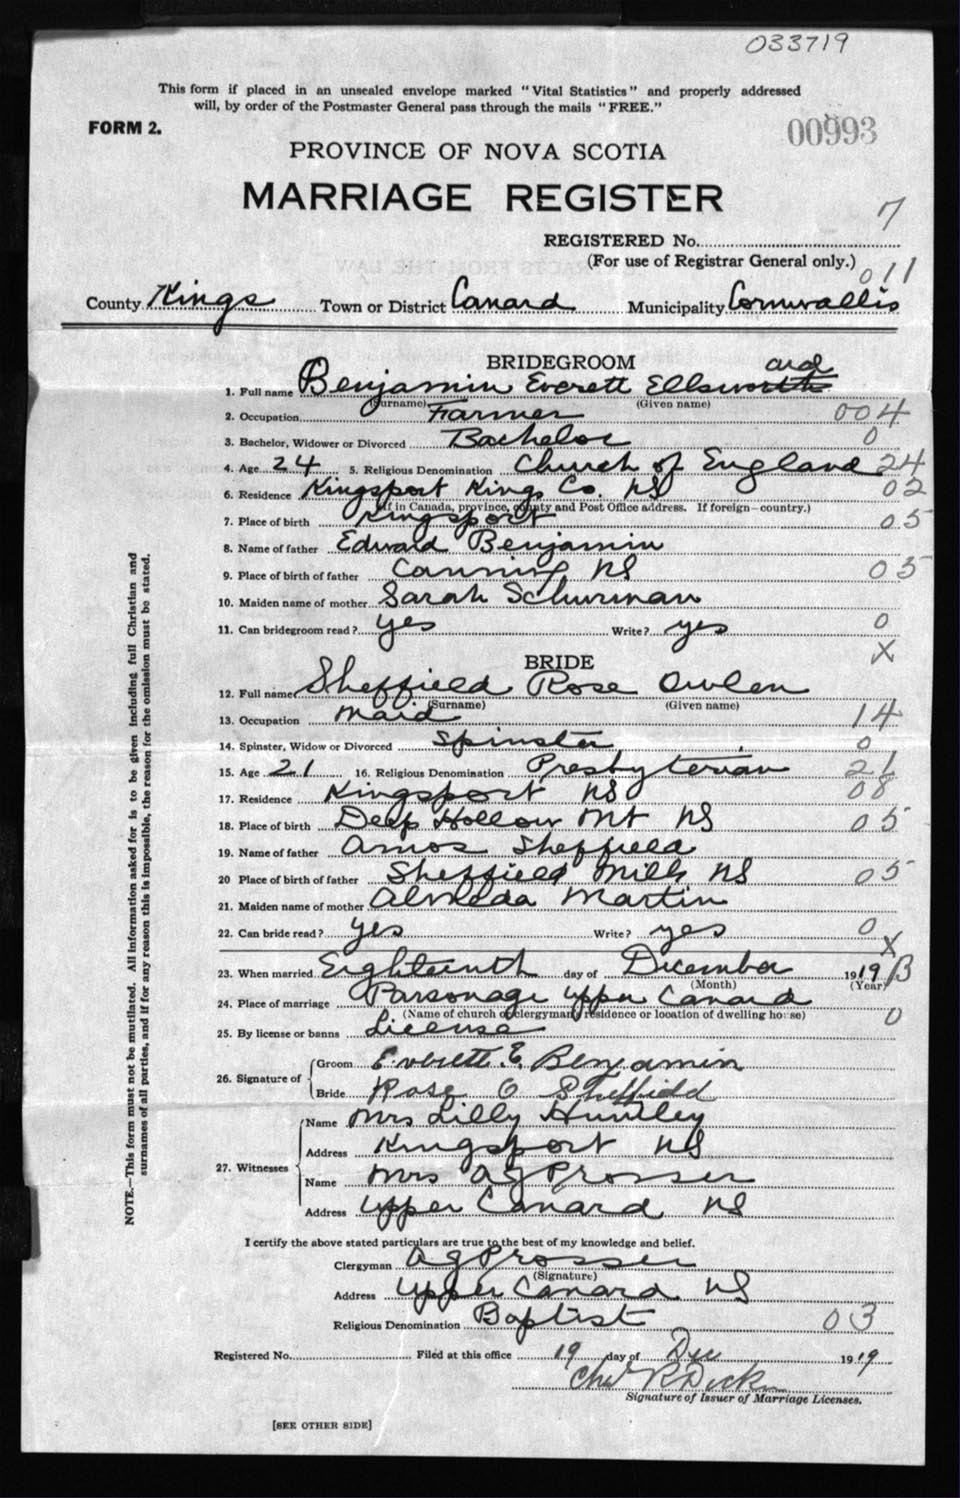 033719
This form if placed in an unsealed envelope marked "Vital Statistics" and properly addressed
will, by order of the Postmaster General pass through the mails "FREE."
FORM 2.
00993
PROVINCE OF NOVA SCOTIA
MARRIAGE REGISTER
7
REGISTERED No.
(For use of Registrar General only.)
011
County Kings Town or District Canard Municipality Cornwallis
BRIDEGROOM
ard
1. Full name Benjamin Everett Ellsworth
(Surname) (Given name)
2. Occupation Farmer 004
3. Bachelor, Widower or Divorced Bachelor 0
4. Age 24 5. Religious Denomination Church of England 24
6. Residence Kingsport Kings Co. NS 02
(If in Canada, province, county and Post Office address. If foreign—country.)
7. Place of birth Kingsport 05
8. Name of father Edward Benjamin
9. Place of birth of father Canning NS 05
10. Maiden name of mother Sarah Schurman
11. Can bridegroom read? yes Write? yes 0
X
BRIDE
12. Full name Sheffield Rose Owlen
(Surname) (Given name)
13. Occupation maid 14
14. Spinster, Widow or Divorced Spinster 0
15. Age 21 16. Religious Denomination Presbyterian 21
17. Residence Kingsport NS 08
18. Place of birth Deep Hollow Mt NS 05
19. Name of father Amos Sheffield
20 Place of birth of father Sheffield Mills NS 05
21. Maiden name of mother Almeda Martin
22. Can bride read? yes Write? yes 0
X
23. When married Eighteenth day of December 1919 B
(Month) (Year)
24. Place of marriage Parsonage Upper Canard
(Name of church or clergyman's residence or location of dwelling house) 0
25. By license or banns License
26. Signature of Groom Everett E. Benjamin
Bride Rose O Sheffield
27. Witnesses Name Mrs Lilly Huntley
Address Kingsport NS
Name Mrs A G Prosser
Address Upper Canard NS
I certify the above stated particulars are true to the best of my knowledge and belief.
Clergyman A G Prosser
(Signature)
Address Upper Canard NS
Religious Denomination Baptist 03
Registered No. Filed at this office 19 day of Dec 1919
Chas R
Signature of Issuer of Marriage Licenses.
[SEE OTHER SIDE]
NOTE.—This form must not be mutilated. All information asked for is to be given including full Christian and
surnames of all parties, and if for any reason this is impossible, the reason for the omission must be stated.